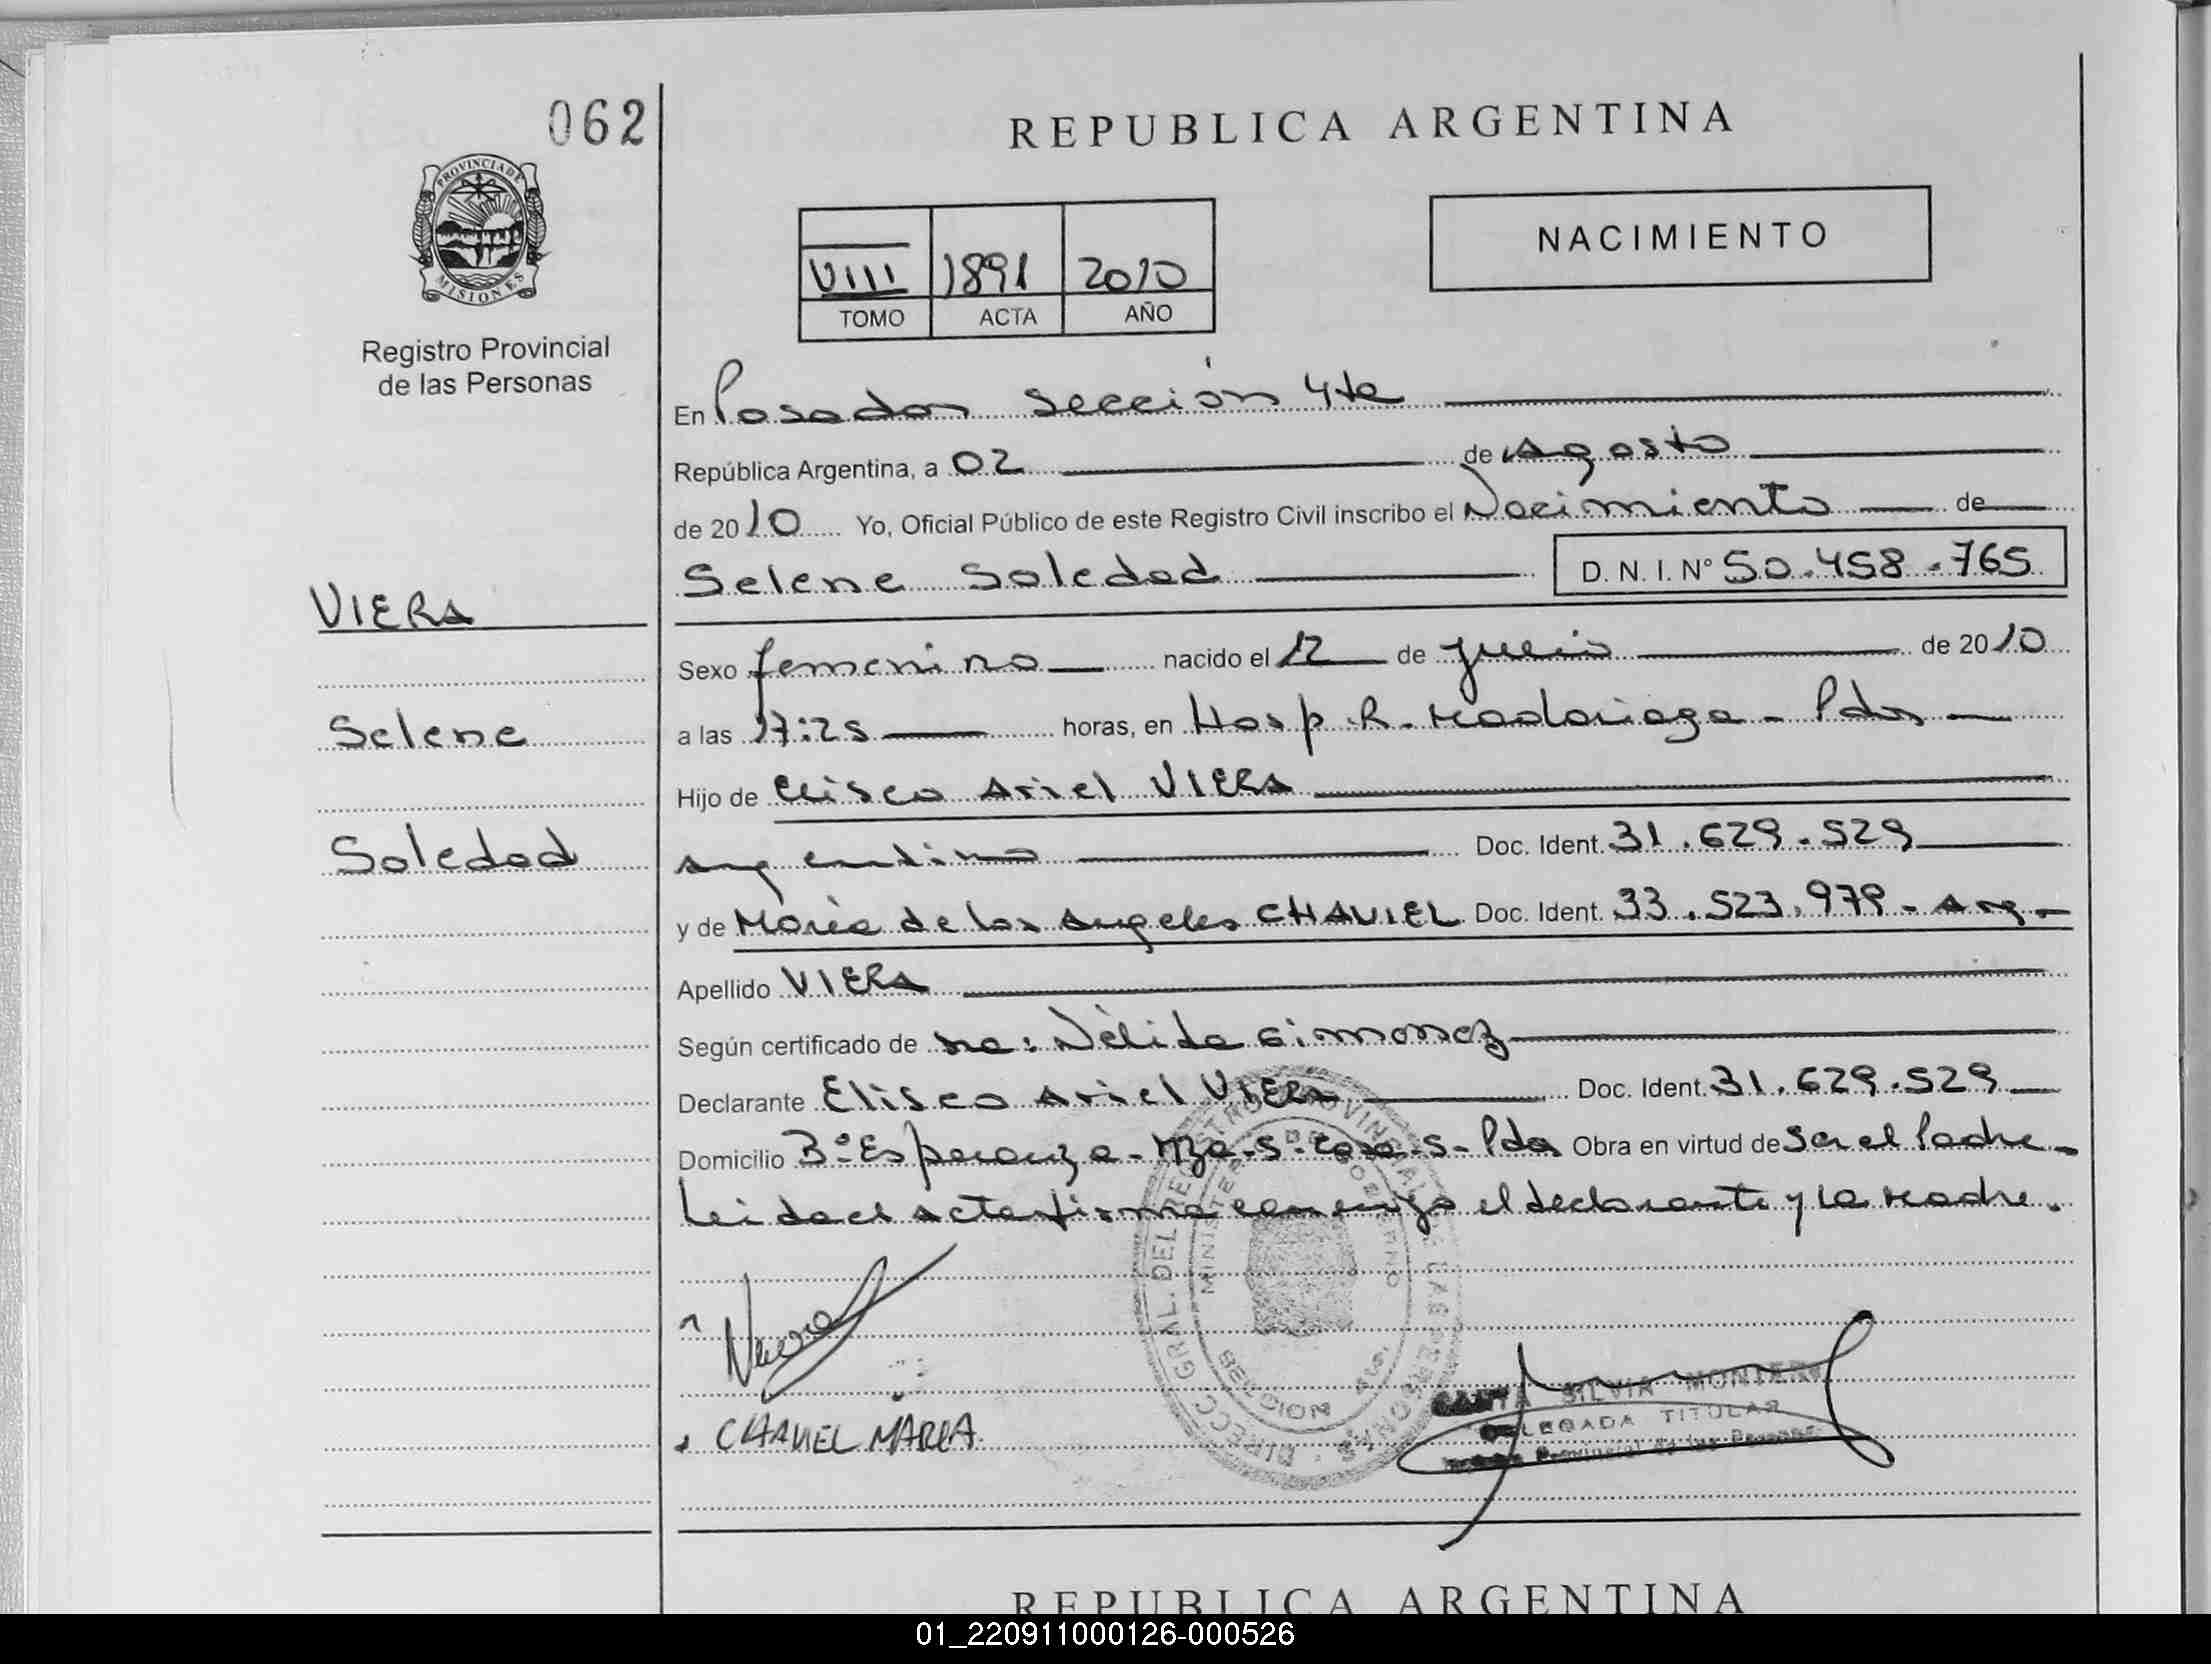 062
REPUBLICA ARGENTINA
PROVINCIA DE
MISIONES
Registro Provincial
de las Personas
VIII 1891 2010
TOMO ACTA AÑO
NACIMIENTO
En Posadas Sección 4ta
República Argentina, a 02 de Agosto
de 2010 Yo, Oficial Público de este Registro Civil inscribo el Nacimiento de
Selene Soledad D. N. I. N° 50.458.765
VIERA
Selene
Soledad
Sexo femenino nacido el 12 de Julio de 2010
a las 17:25 horas, en Hosp. R. Madariaga - Pdas
Hijo de Eliseo Ariel VIERA
argentino Doc. Ident. 31.629.529
y de María de los Angeles CHAVIEL Doc. Ident. 33.523.979 - Arg.
Apellido VIERA
Según certificado de Nélida Gimenez
Declarante Eliseo Ariel VIERA Doc. Ident. 31.629.529
Domicilio B° Esperanza - Mza. S. Casa. S - Pdas Obra en virtud de Ser el Padre
Leida el acta firma conmigo el declarante y la Madre.
DIRECC. GRAL. DEL REGISTRO PROVINCIAL DE LAS PERSONAS
MINISTERIO DE GOBIERNO
CHAVIEL MARIA
SILVIA
DELEGADA TITULAR
Provincial de las Personas
REPUBLICA ARGENTINA
01_220911000126-000526